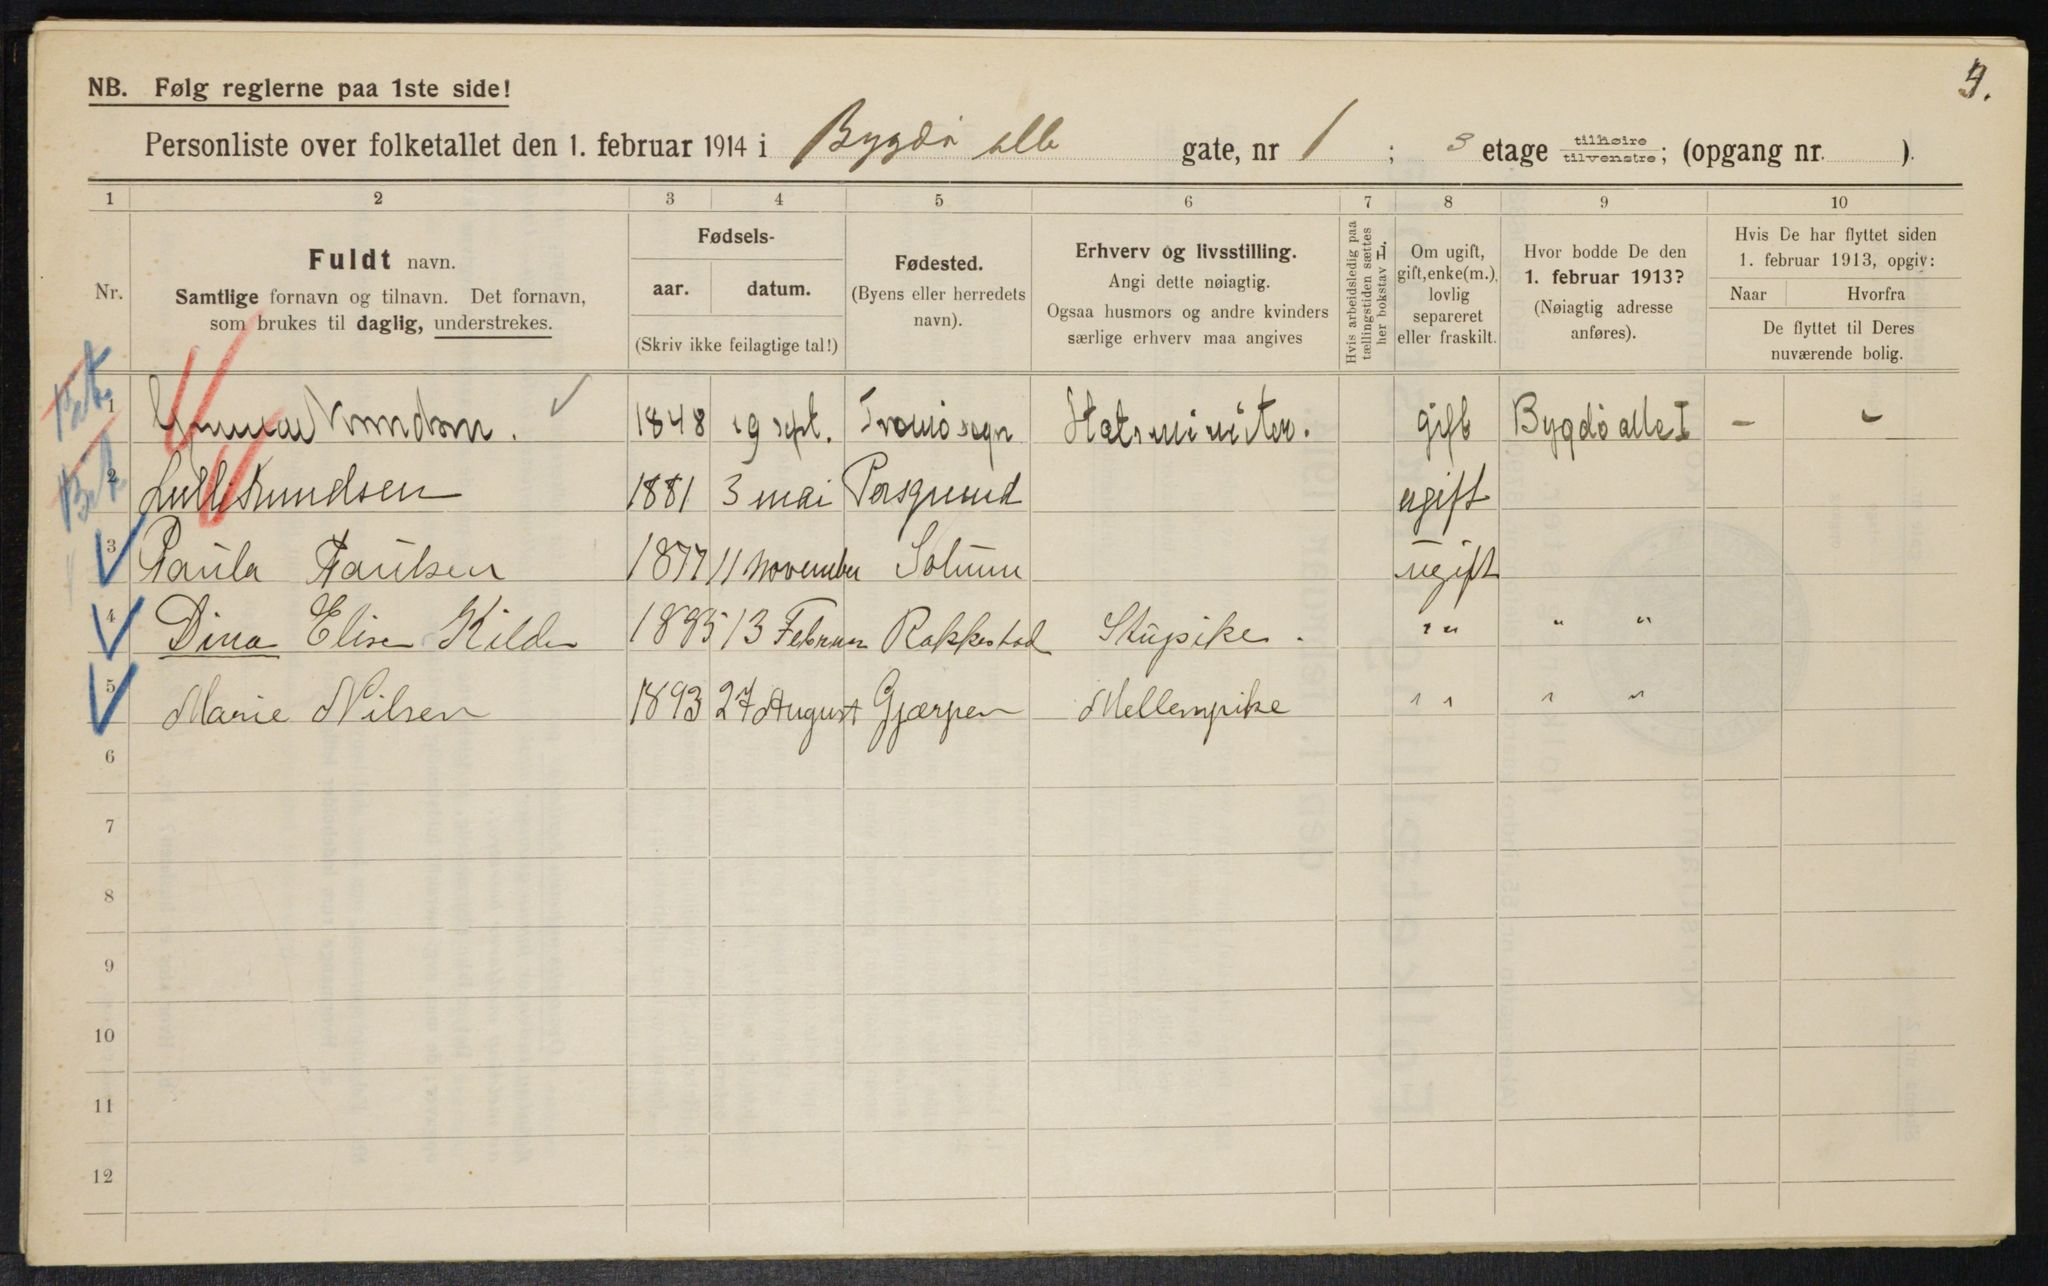 4.
NB. Følg reglerne paa 1ste side!
Personliste over folketallet den 1. februar 1914 i Bygdø alle gate, nr 1 ; 3 etage tilhøire tilvenstre; (opgang nr. ).
1 2 3 4 5 6 7 8 9 10
Nr.
Fuldt navn.
Samtlige fornavn og tilnavn. Det fornavn,
som brukes til daglig, understrekes.
Fødsels-
aar. datum.
(Skriv ikke feilagtige tal!)
Fødested.
(Byens eller herredets
navn).
Erhverv og livsstilling.
Angi dette nøiagtig.
Ogsaa husmors og andre kvinders
særlige erhverv maa angives
Hvis arbeidsledig paa
tællingstiden sættes
her bokstav L.
Om ugift,
gift, enke(m.),
lovlig
separeret
eller fraskilt.
Hvor bodde De den
1. februar 1913?
(Nøiagtig adresse
anføres).
Hvis De har flyttet siden
1. februar 1913, opgiv:
Naar Hvorfra
De flyttet til Deres
nuværende bolig.
1 Gunnar Knudsen. 1848 19 sept. Tromø sogn Statsminister. gift Bygdø alle I - -
2 Lulli Knudsen 1881 3 mai Porsgrund ugift
3 Paula Paulsen 1877 11 November Solum ugift
4 Dina Elise Kilde 1885 13 Februar Rakkestad Stupike. " " " "
5 Marie Nilsen 1893 27 August Gjærpen Mellempike " " " "
6
7
8
9
10
11
12